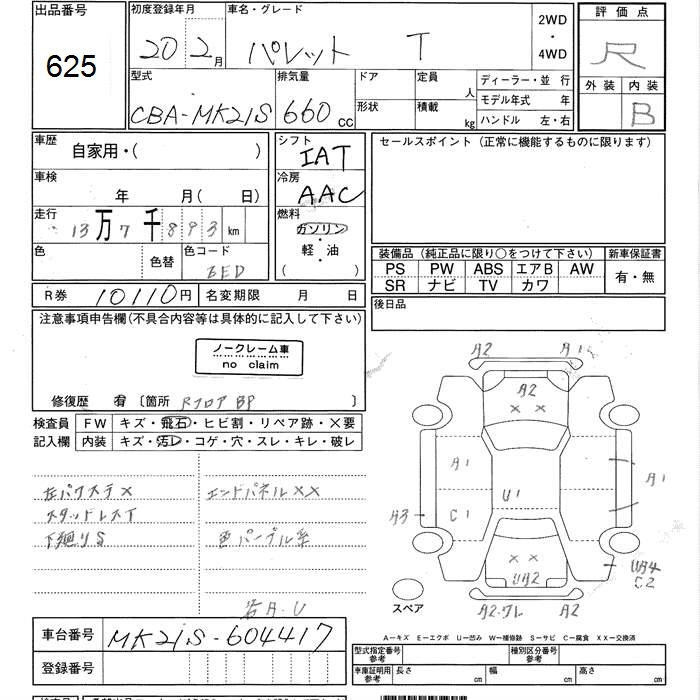 出品番号 初度登録年月 車名・グレード 2WD・4WD 評価点
625 20 2月 パレット T R
型式 排気量 ドア 定員 人 ディーラー・並 行 外装 内装
CBA-MK21S 660cc 形状 積載 kg モデル年式 年 B
ハンドル 左・右
車歴 自家用・( ) シフト IAT セールスポイント (正常に機能するものに限ります)
車検 年 月(日) 冷房 AAC
走行 13万7千893km 燃料 ガソリン・軽・油 ( )
色 色替 色コード 装備品 (純正品に限り○をつけて下さい) 新車保証書
PS PW ABS エアB AW 有・無
SR ナビ TV カワ
R券 10110円 名変期限 月 日 後日品
注意事項申告欄(不具合内容等は具体的に記入して下さい)
ノークレーム車
no claim
修復歴 有 〔箇所 RフロアBP
検査員 FW キズ・飛石・ヒビ割・リペア跡・×要
記入欄 内装 キズ・汚レ・コゲ・穴・スレ・キレ・破レ
A2 A1
A2
××
A1 A1
U1
A3 C1
××
UA2 C2
A2 A2
左バクステ× エンドパネル××
スタッドレスT
下廻りS 色パープル系
スペア
各A・U
A－キズ E－エクボ U－凹み W－補修跡 S－サビ C－腐食 XX－交換済
車台番号 MK21S-604417 型式指定番号 参考 種別区分番号 参考
登録番号 車庫証明用 参考 長さ cm 幅 cm 高さ cm